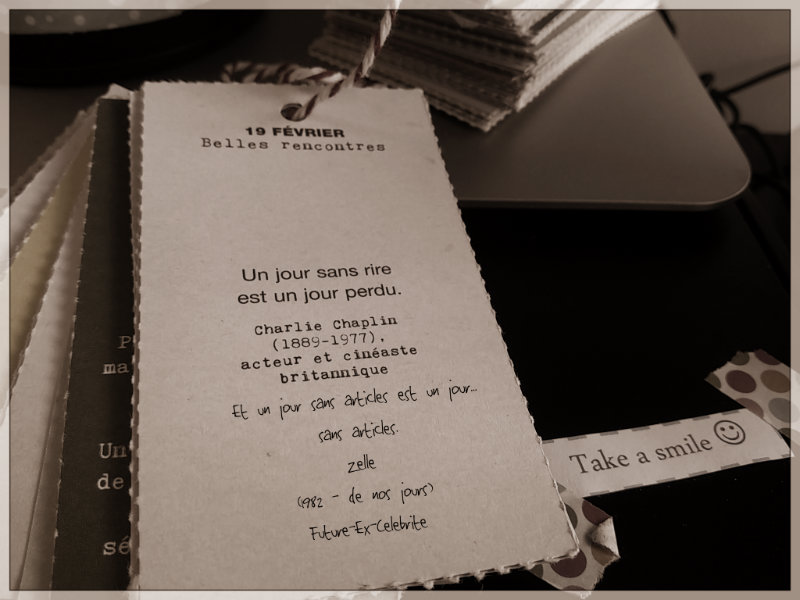 19 FÉVRIER
Belles rencontres
Un jour sans rire
est un jour perdu.
Charlie Chaplin
(1889-1977),
acteur et cinéaste
britannique
Et un jour sans articles est un jour...
sans articles.
zelle
(1982 - de nos jours)
Future-Ex-Celebrite
Take a smile ☺
P
ma
Un
de
sé